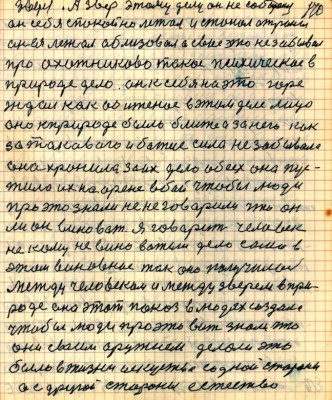 зверь. А зверь этому делу он не собирал
он себя спокойно лежал и стонал от раны
он лежал облизовал а своё это не забывал
про охотниково такое психическое в
природе дело. он к себя на это горе
ждал как обитение в этим деле лицо
оно к природе было ближе а за него как
за такавого и бажие сила не забывала
она хронила за их дело обеих она пус-
тила их на арене в бой чтобы люди
про это знали не не говорили что он
ли он виноват. Я говорит человек
не кому не вино ватый дело сами в
этом виновные так оно получилось
между человеком и между зверем в при-
роде она этот показ в людях создала
чтобы люди про это вит знали то
они своим оружием делали это
было в жизни искуства с одной стороны
а с другой стороны естество